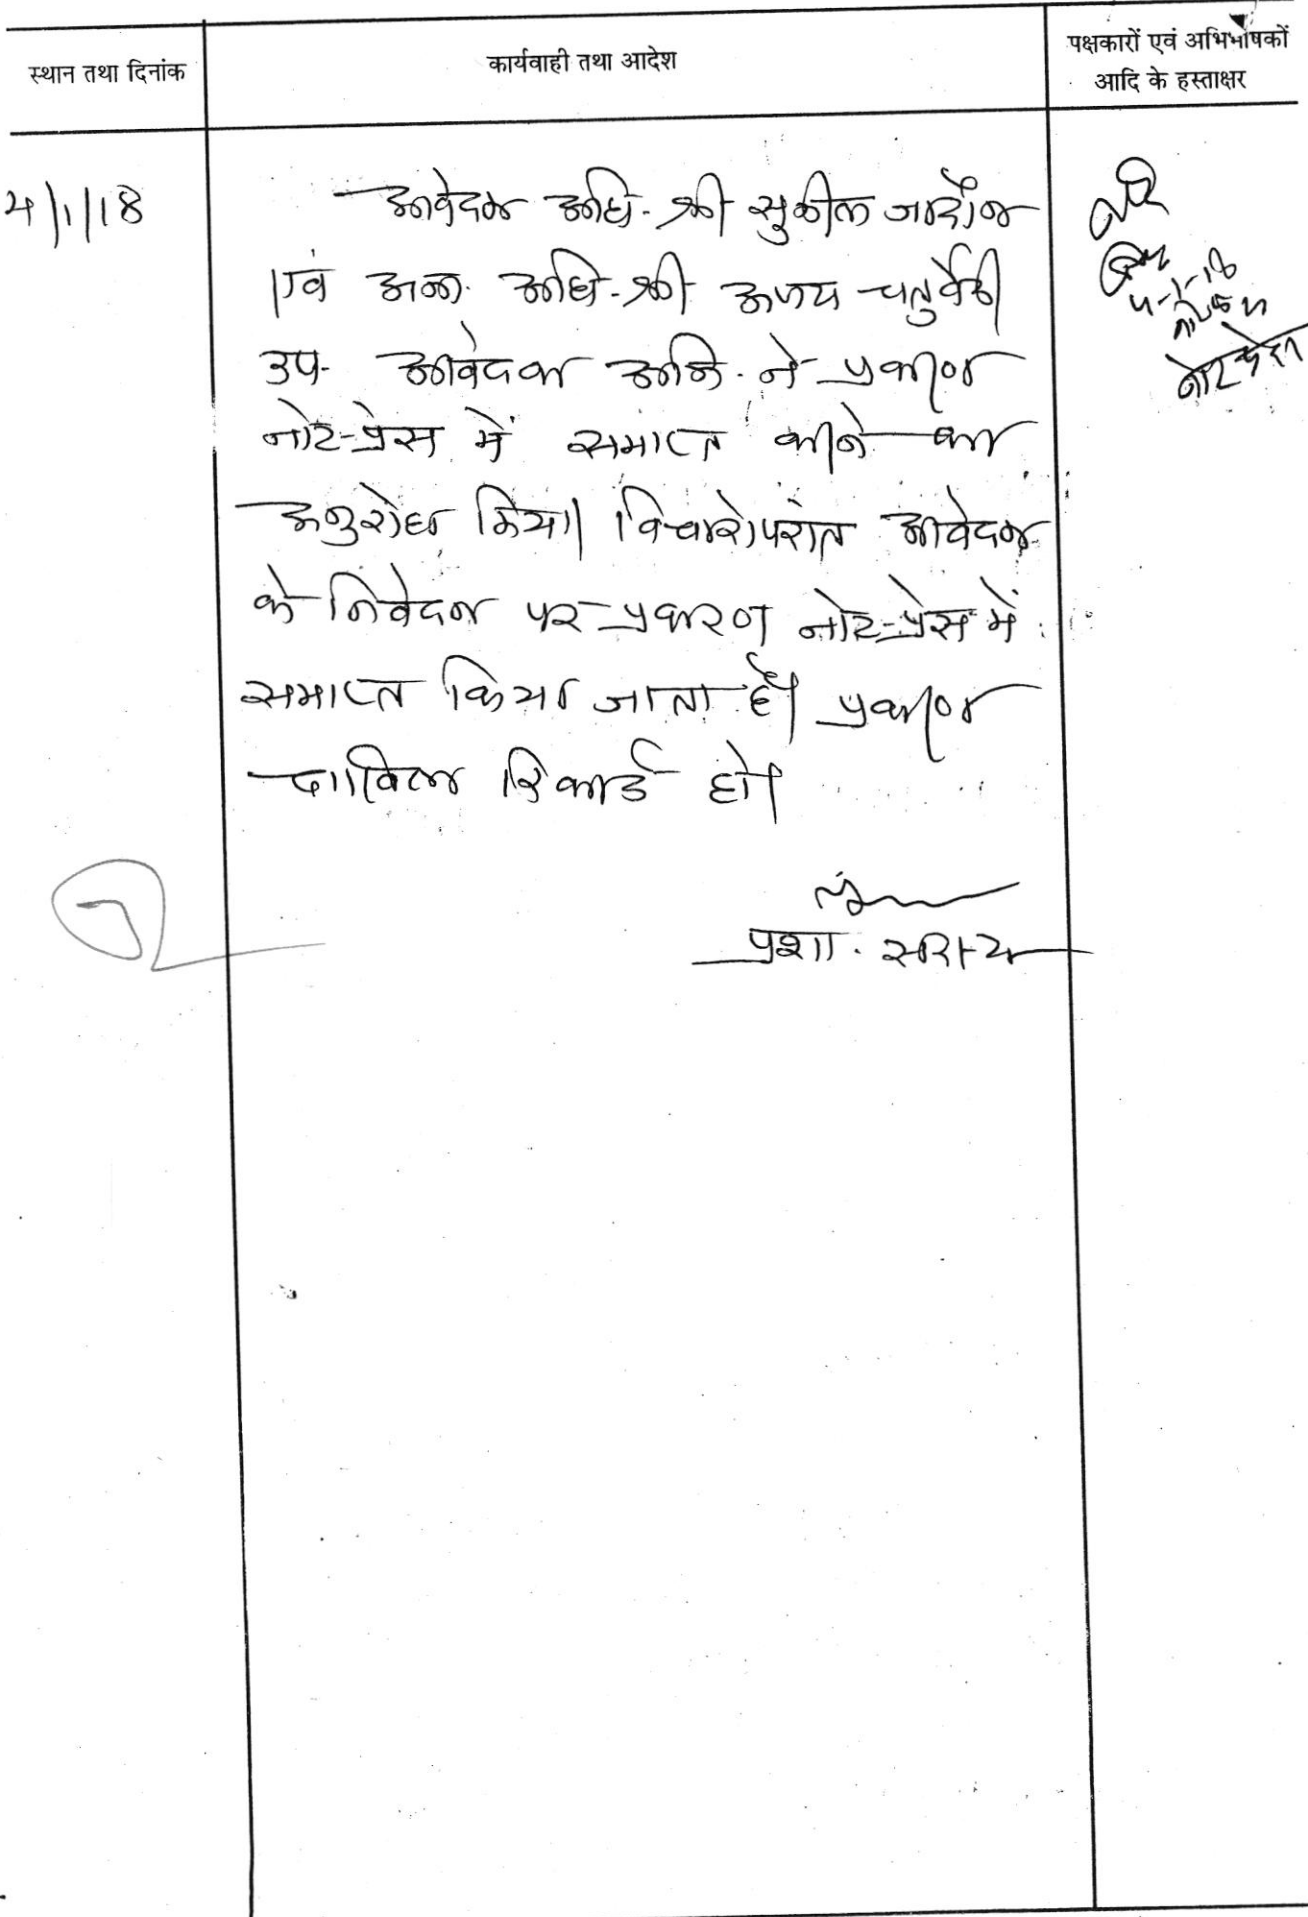 स्थान तथा दिनांक
कार्यवाही तथा आदेश
पक्षकारों एवं अभिभाषकों
आदि के हस्ताक्षर
4/1/18
आवेदक अधि. श्री सुनील जादौन
एवं अना. अधि. श्री अजय चतुर्वेदी
उप. आवेदक अभि. ने प्रकरण
नोट-प्रेस में समाप्त करने का
अनुरोध किया। विचारोपरांत आवेदक
के निवेदन पर प्रकरण नोट-प्रेस में
समाप्त किया जाता है। प्रकरण
दाखिल रिकार्ड हो।
प्रशा. सदस्य
4-1-18